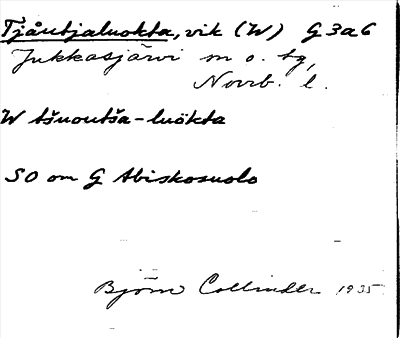 Tjåutjaluokta, vik (W) G 3a6
Jukkasjärvi sn o. tg,
Norrb. l.
W tšuoutša-luökta
SO om G Abiskosuolo
Björn Collinder 1935